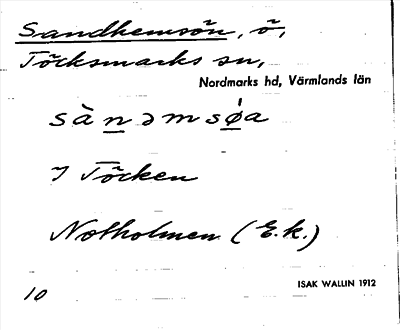 Sandhemsön, ö,
Töcksmarks sn,
Nordmarks hd, Värmlands län
sànəmsǿa
I Töcken
Notholmen (E.k.)
ISAK WALLIN 1912
10